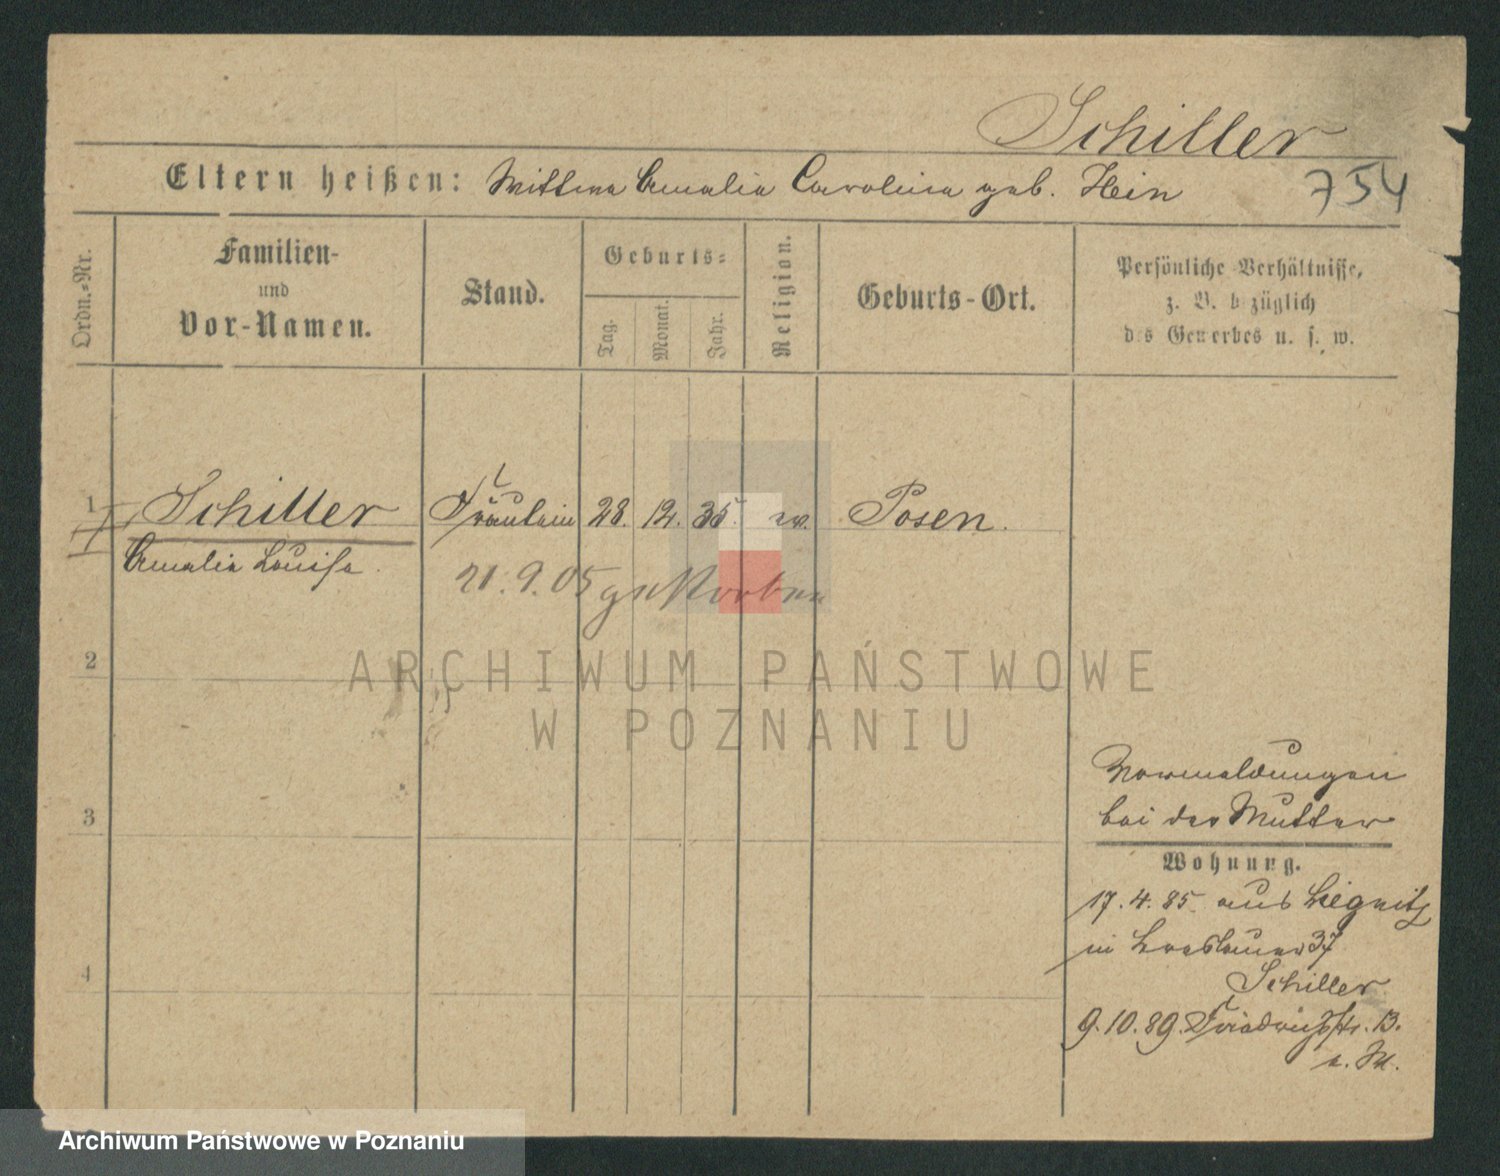 Schiller
Eltern heißen: Wittwe Amalia Carolina geb. Hein 754
Ordn.-Nr.
Familien- und Vor-Namen.
Stand.
Geburts-
Tag.
Monat.
Jahr.
Religion.
Geburts-Ort.
Persönliche Verhältnisse,
z. B. bezüglich
des Gewerbes u. s. w.
1 Schiller Fräulein 28. 12. 35. ev. Posen.
Amalia Louisa.
21.9.05 gestorben
2
ARCHIWUM PAŃSTWOWE
W POZNANIU
3
4
Vormeldungen
bei der Mutter
Wohnung.
17.4.85 aus Liegnitz
in Breslauer 37
Schiller
9.10.89. Friedrichstr. 13.
b. M.
Archiwum Państwowe w Poznaniu